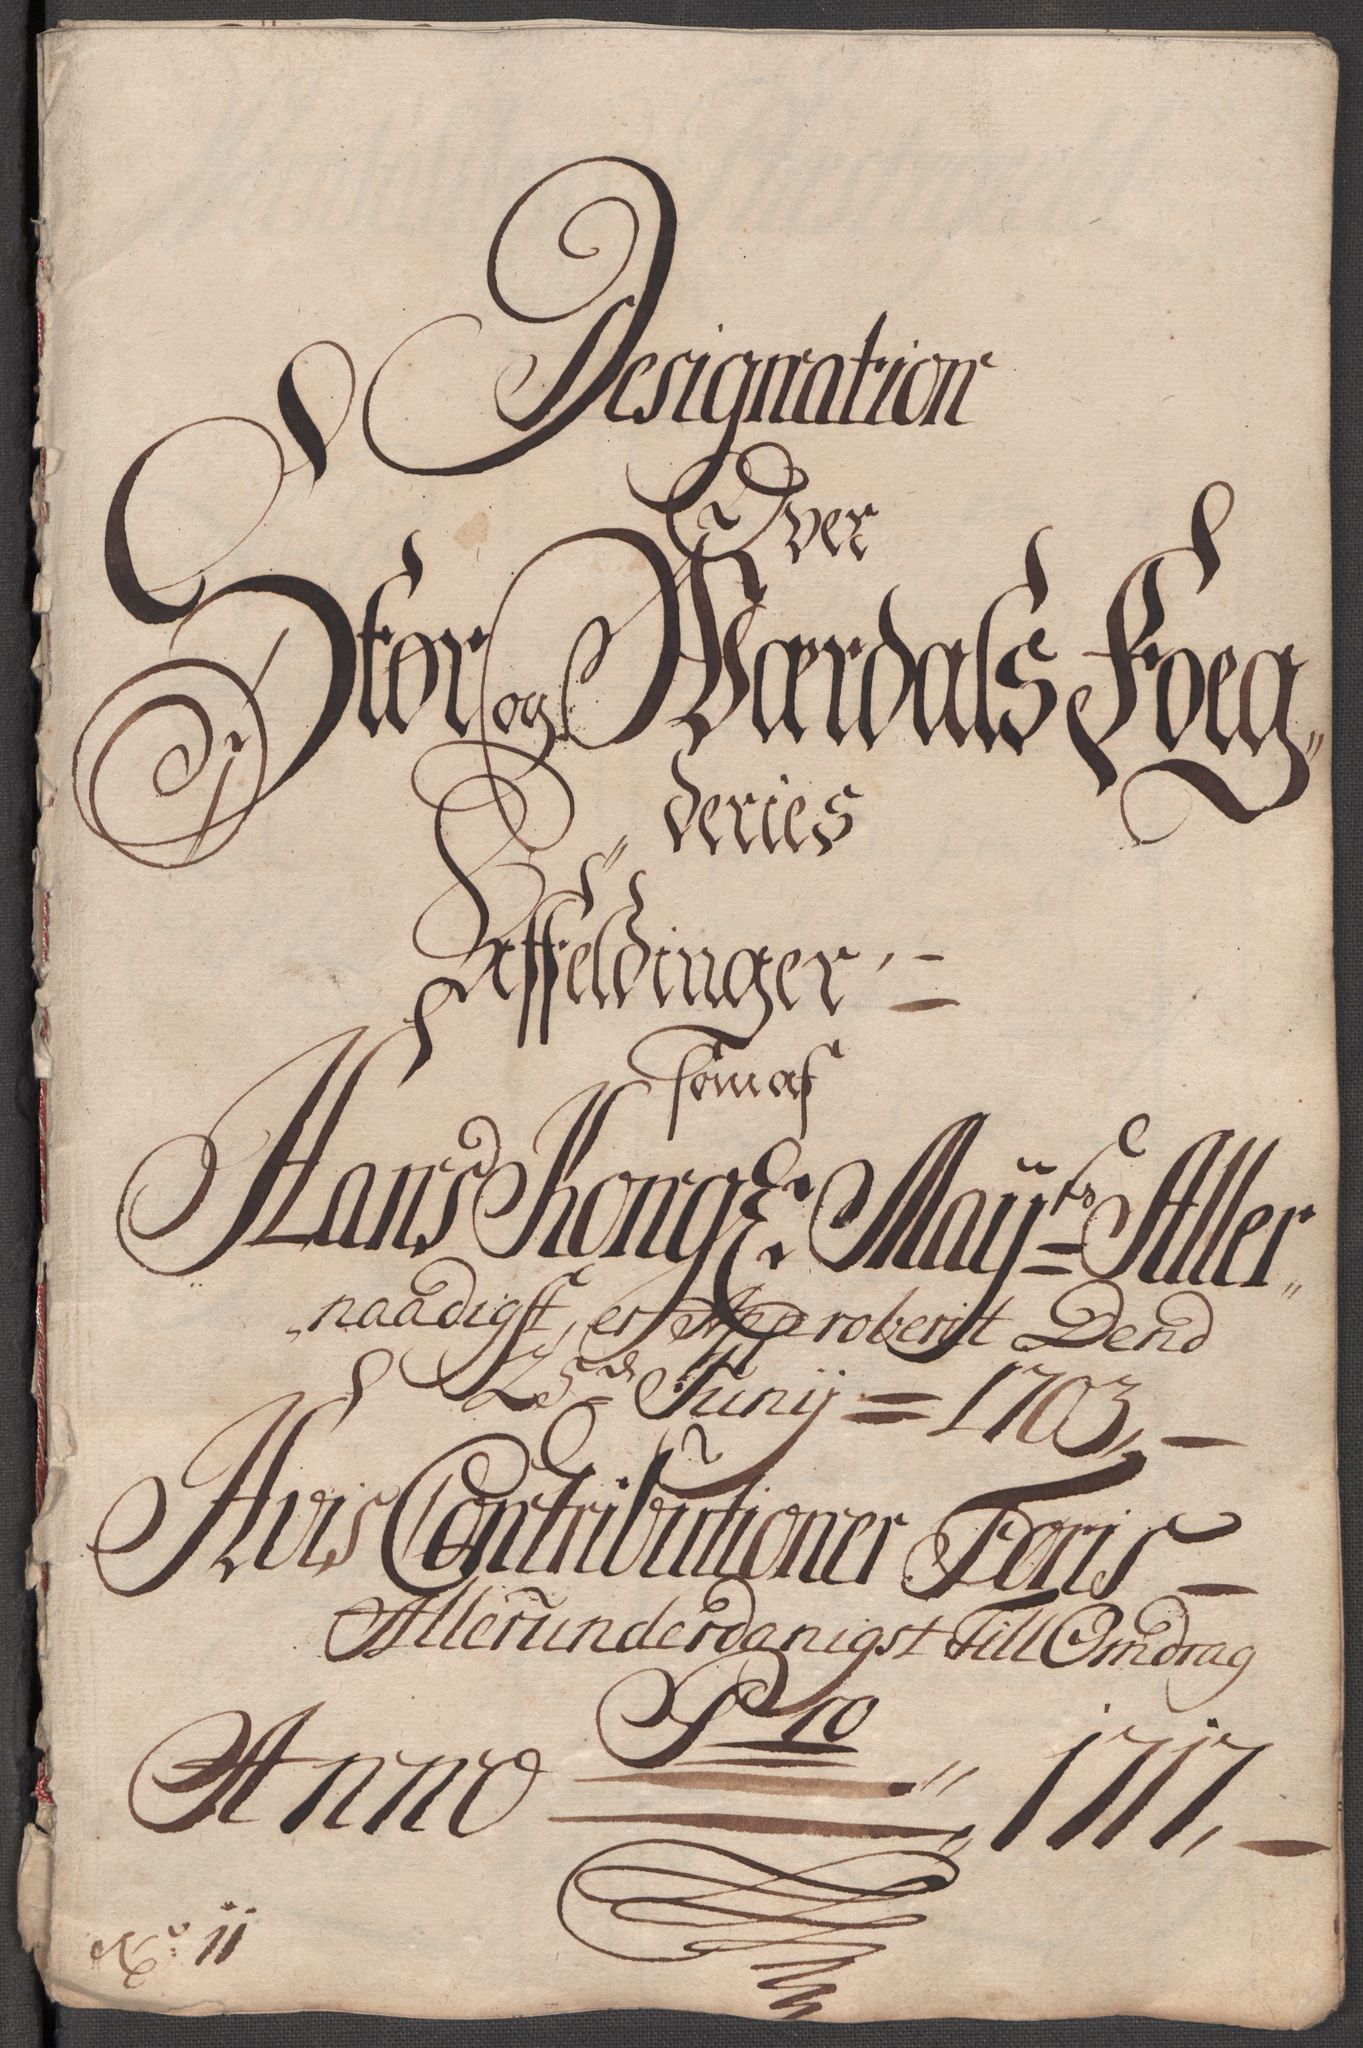 Designation
Over
Stør og Værdals Foeg„
„deries
Affeldinger
som af
Hans Kongl: May:ts Aller„
„naadigst, er Approberitt Dend
25de Junij = 1703,
Hvis Contributioner Foris
Allerunderdanigst Till Omdrag
Pro
Anno 1717,
No: 11